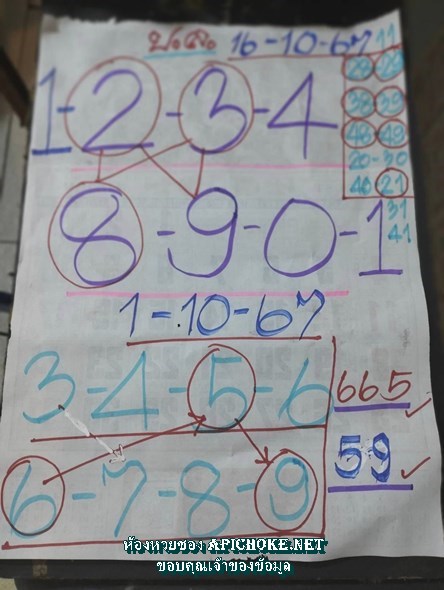 16-10-67
11
28 29
1-2-3-4
38 39
48 49
20-30
40 21
31
8-9-0-1
41
1-10-67
3-4-5-6
665
6-7-8-9
59
ห้องหวยซอง APICHOKE.NET
ขอบคุณเจ้าของข้อมูล